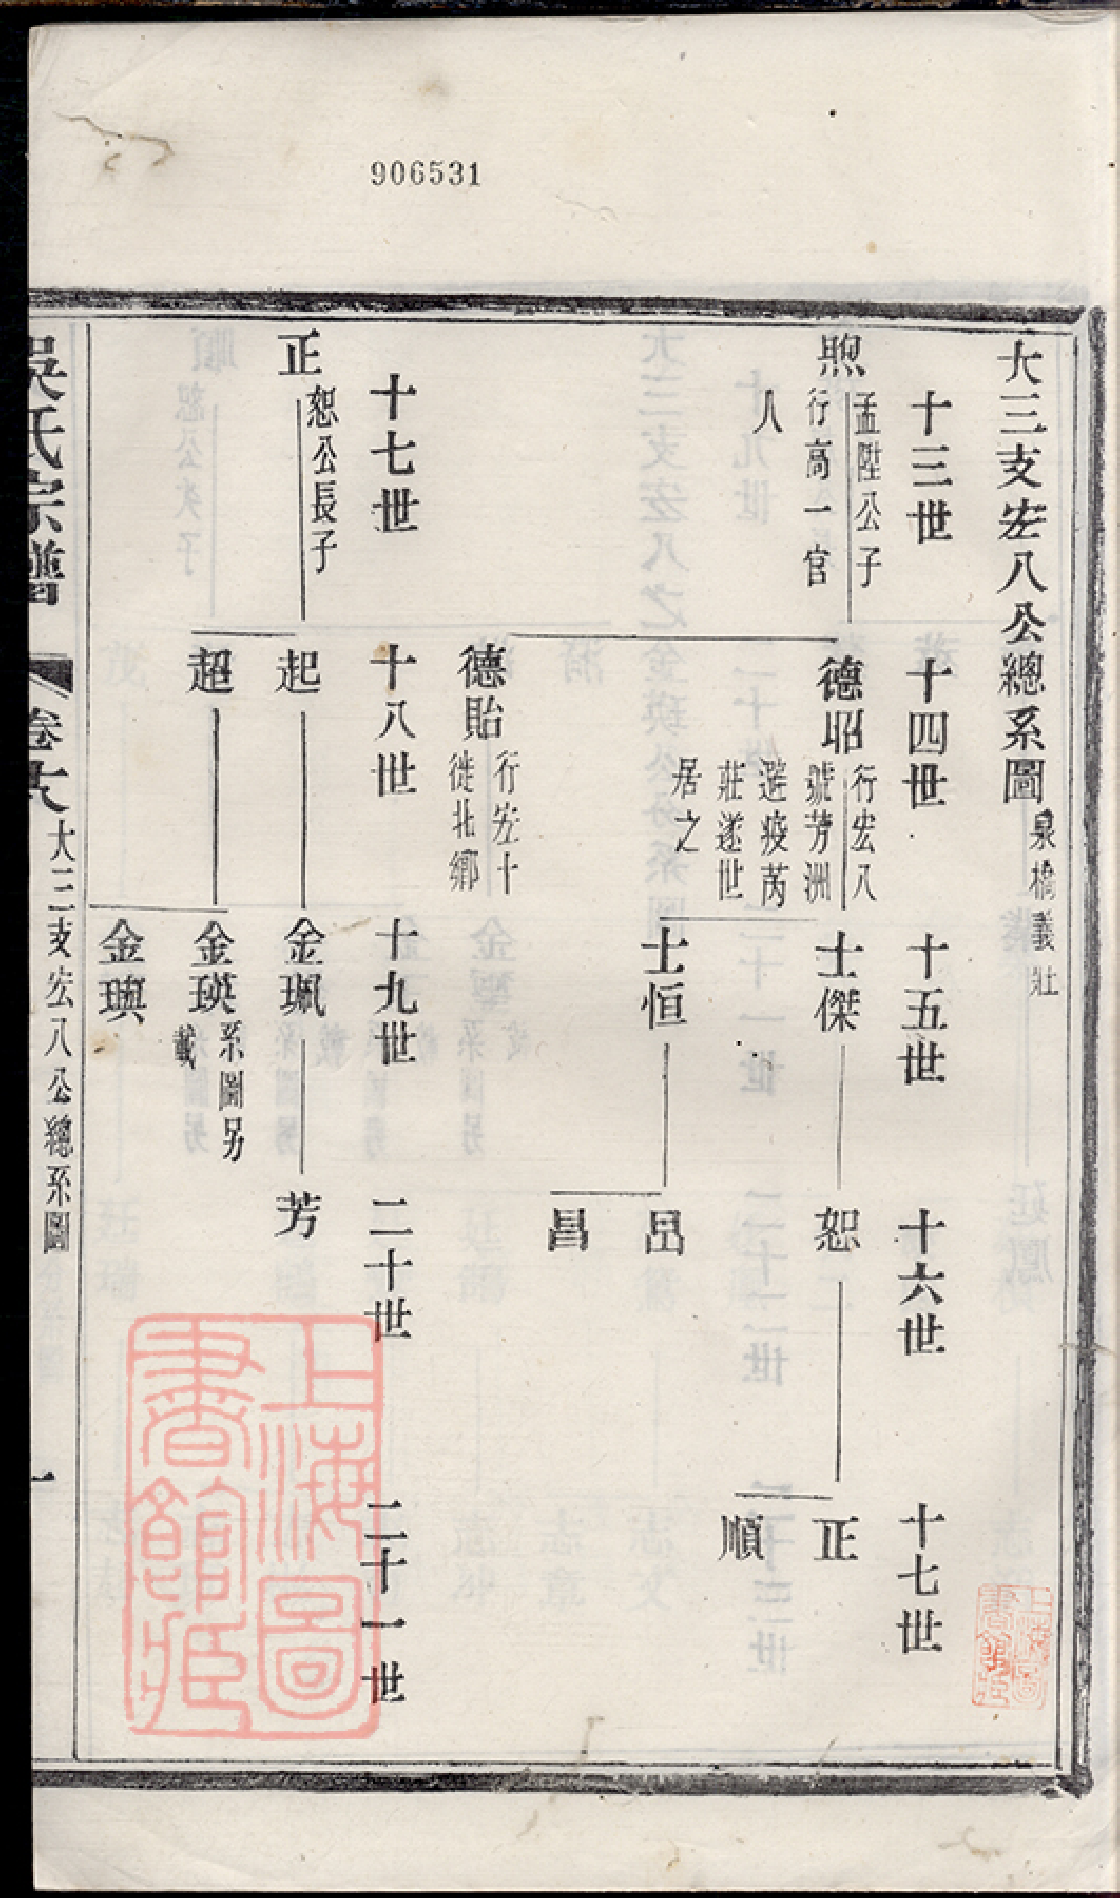 906531
大三支宏八公總系圖
泉橋義莊
十三世
十四世
十五世
十六世
十七世
煦
孟陞公子
行高一官
人
德昭
行宏八
號芳洲
避疫芮
莊遂世
居之
士傑
恕
正
順
士恒
昌
德貽
行宏十
徙北鄉
十七世
十八世
十九世
二十世
二十一世
正
恕公長子
起
金珮
芳
超
金瑛
系圖另
載
金璵
吳氏宗譜
卷十八
大三支宏八公總系圖
一
上海圖
書館藏
上海圖
書館藏